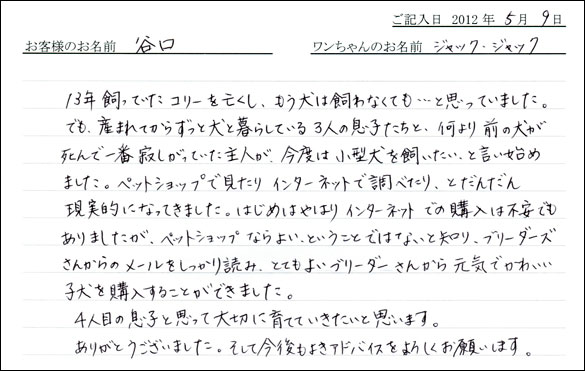 ご記入日 2012年 5月 9日
お客様のお名前 谷口 ワンちゃんのお名前 ジャック・ジャック
13年飼っていたコリーを亡くし、もう犬は飼わなくても…と思っていました。
でも、産まれてからずっと犬と暮らしている3人の息子たちと、何より前の犬が
死んで一番寂しがっていた主人が、今度は小型犬を飼いたい、と言い始め
ました。ペットショップで見たりインターネットで調べたり、とだんだん
現実的になってきました。はじめはやはりインターネットでの購入は不安でも
ありましたが、ペットショップならよい、ということではないと知り、ブリーダーズ
さんからのメールをしっかり読み、とてもよいブリーダーさんから元気でかわいい
子犬を購入することができました。
4人目の息子と思って大切に育てていきたいと思います。
ありがとうございました。そして今後もよきアドバイスをよろしくお願いします。